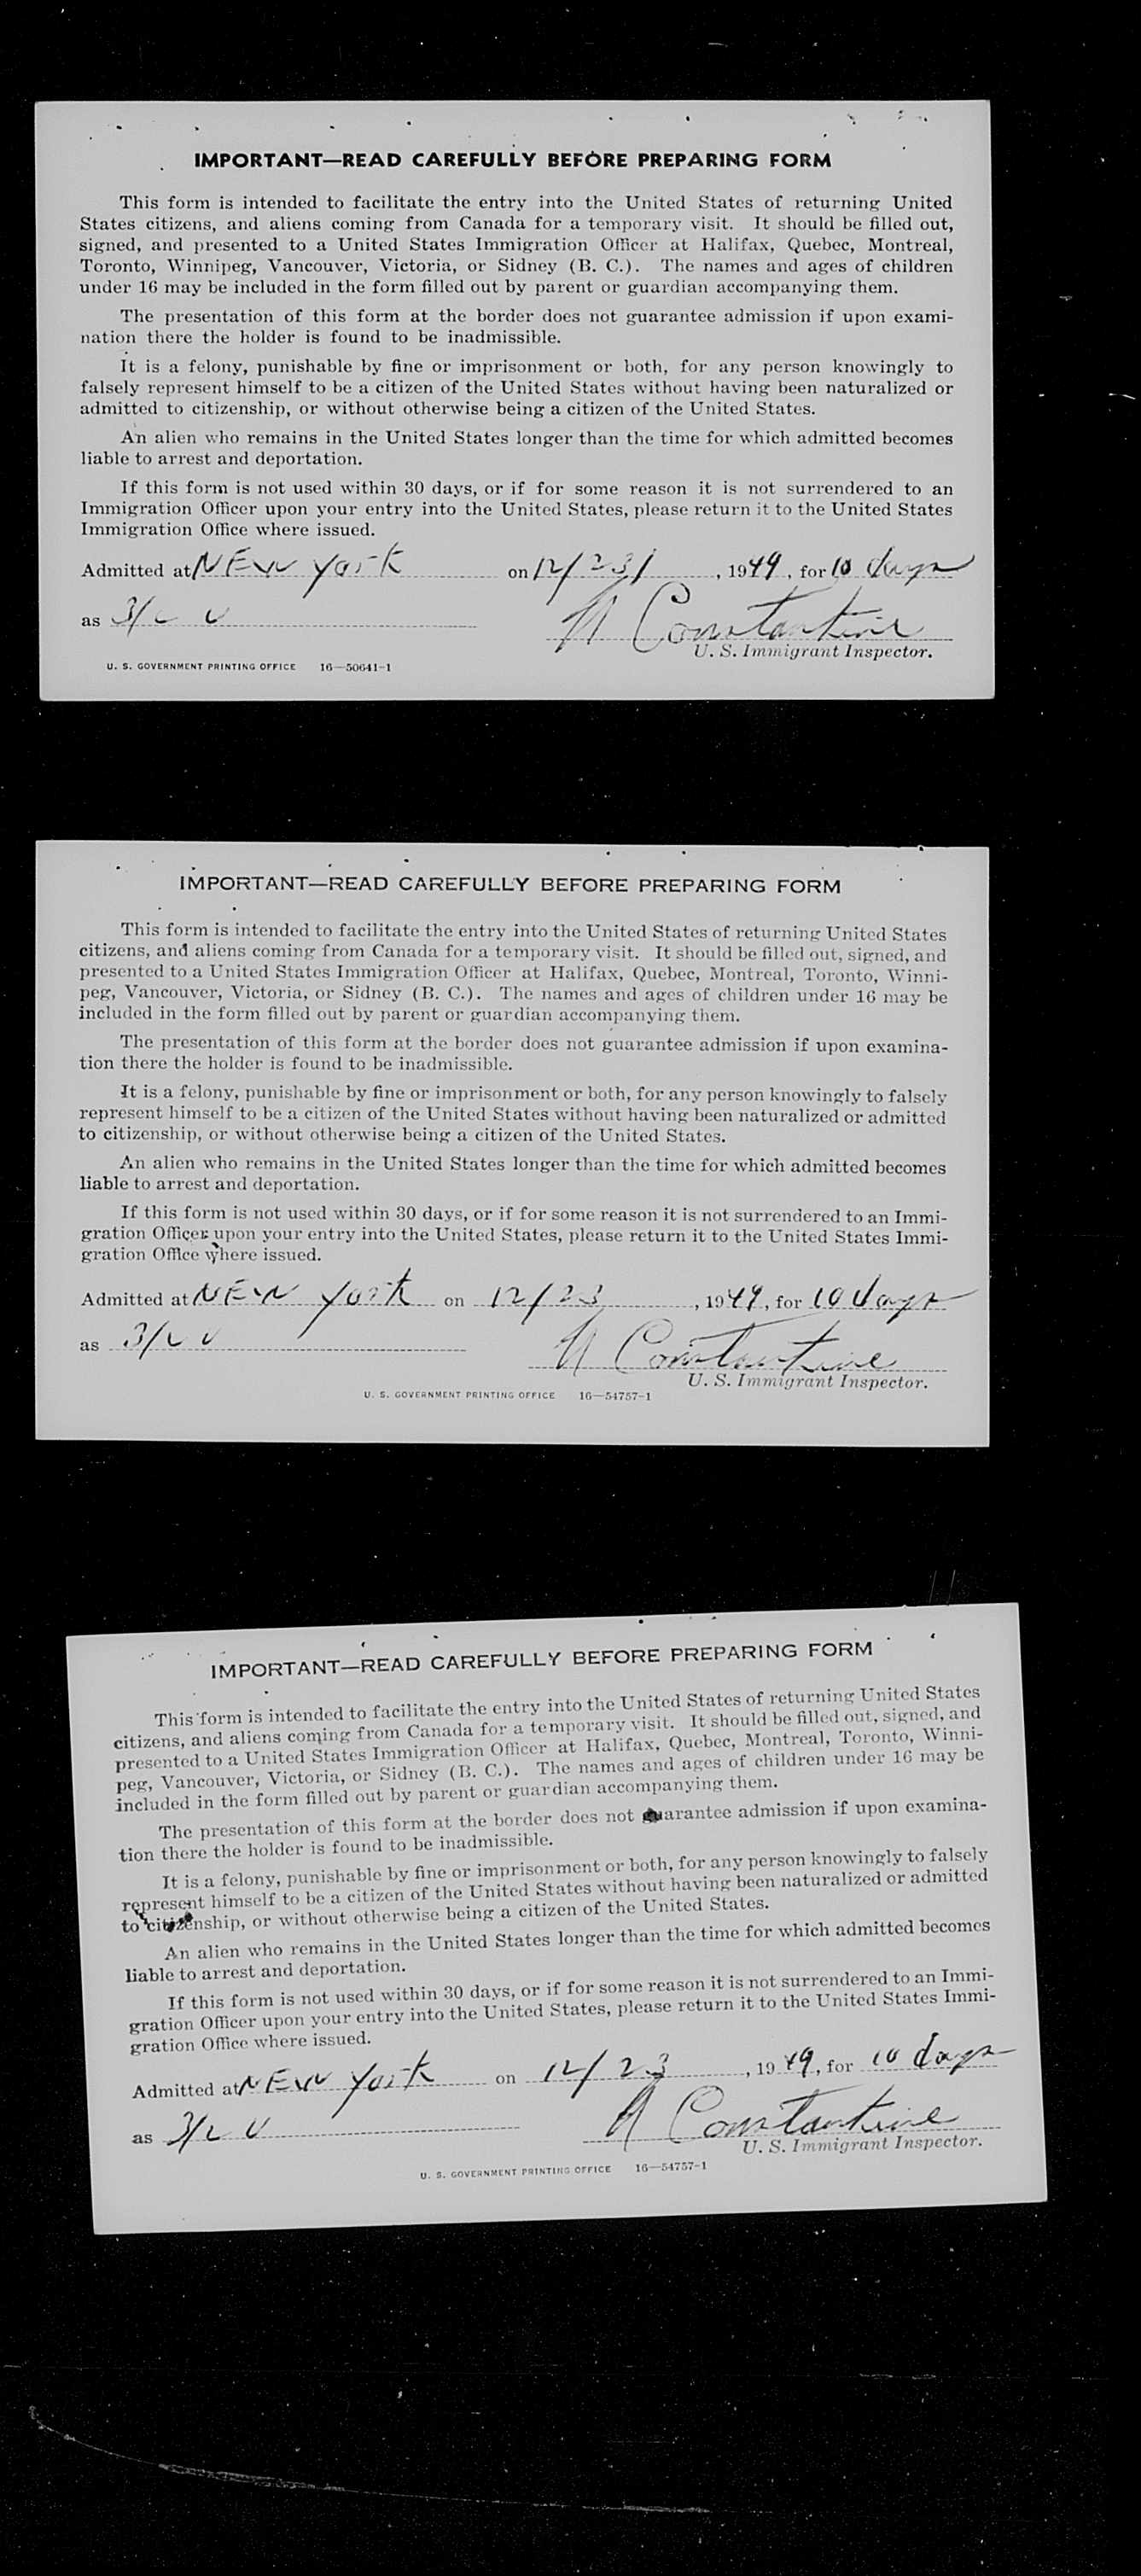 IMPORTANT—READ CAREFULLY BEFORE PREPARING FORM
This form is intended to facilitate the entry into the United States of returning United
States citizens, and aliens coming from Canada for a temporary visit. It should be filled out,
signed, and presented to a United States Immigration Officer at Halifax, Quebec, Montreal,
Toronto, Winnipeg, Vancouver, Victoria, or Sidney (B. C.). The names and ages of children
under 16 may be included in the form filled out by parent or guardian accompanying them.
The presentation of this form at the border does not guarantee admission if upon exami-
nation there the holder is found to be inadmissible.
It is a felony, punishable by fine or imprisonment or both, for any person knowingly to
falsely represent himself to be a citizen of the United States without having been naturalized or
admitted to citizenship, or without otherwise being a citizen of the United States.
An alien who remains in the United States longer than the time for which admitted becomes
liable to arrest and deportation.
If this form is not used within 30 days, or if for some reason it is not surrendered to an
Immigration Officer upon your entry into the United States, please return it to the United States
Immigration Office where issued.
Admitted at NEW York on 12/23/, 1949, for 10 days
as 3/2
N Constantine
U. S. Immigrant Inspector.
U. S. GOVERNMENT PRINTING OFFICE 16—50641-1
IMPORTANT—READ CAREFULLY BEFORE PREPARING FORM
This form is intended to facilitate the entry into the United States of returning United States
citizens, and aliens coming from Canada for a temporary visit. It should be filled out, signed, and
presented to a United States Immigration Officer at Halifax, Quebec, Montreal, Toronto, Winni-
peg, Vancouver, Victoria, or Sidney (B. C.). The names and ages of children under 16 may be
included in the form filled out by parent or guardian accompanying them.
The presentation of this form at the border does not guarantee admission if upon examina-
tion there the holder is found to be inadmissible.
It is a felony, punishable by fine or imprisonment or both, for any person knowingly to falsely
represent himself to be a citizen of the United States without having been naturalized or admitted
to citizenship, or without otherwise being a citizen of the United States.
An alien who remains in the United States longer than the time for which admitted becomes
liable to arrest and deportation.
If this form is not used within 30 days, or if for some reason it is not surrendered to an Immi-
gration Officer upon your entry into the United States, please return it to the United States Immi-
gration Office where issued.
Admitted at NEW York on 12/23, 1949, for 10 days
as 3/2
N Constantine
U. S. Immigrant Inspector.
U. S. GOVERNMENT PRINTING OFFICE 16—54757-1
IMPORTANT—READ CAREFULLY BEFORE PREPARING FORM
This form is intended to facilitate the entry into the United States of returning United States
citizens, and aliens coming from Canada for a temporary visit. It should be filled out, signed, and
presented to a United States Immigration Officer at Halifax, Quebec, Montreal, Toronto, Winni-
peg, Vancouver, Victoria, or Sidney (B. C.). The names and ages of children under 16 may be
included in the form filled out by parent or guardian accompanying them.
The presentation of this form at the border does not guarantee admission if upon examina-
tion there the holder is found to be inadmissible.
It is a felony, punishable by fine or imprisonment or both, for any person knowingly to falsely
represent himself to be a citizen of the United States without having been naturalized or admitted
to citizenship, or without otherwise being a citizen of the United States.
An alien who remains in the United States longer than the time for which admitted becomes
liable to arrest and deportation.
If this form is not used within 30 days, or if for some reason it is not surrendered to an Immi-
gration Officer upon your entry into the United States, please return it to the United States Immi-
gration Office where issued.
Admitted at NEW York on 12/23, 1949, for 10 days
as 3/2
N Constantine
U. S. Immigrant Inspector.
U. S. GOVERNMENT PRINTING OFFICE 16—54757-1